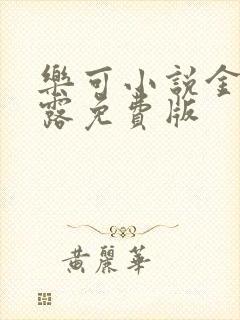 樂可小說金
露免費版
黃麗華